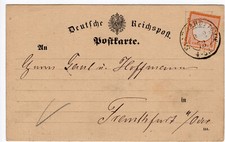 Deutsche Reichspost.
Postkarte.
An
Herrn Paul u Hoffmann
in
Frankfurt a/Oder